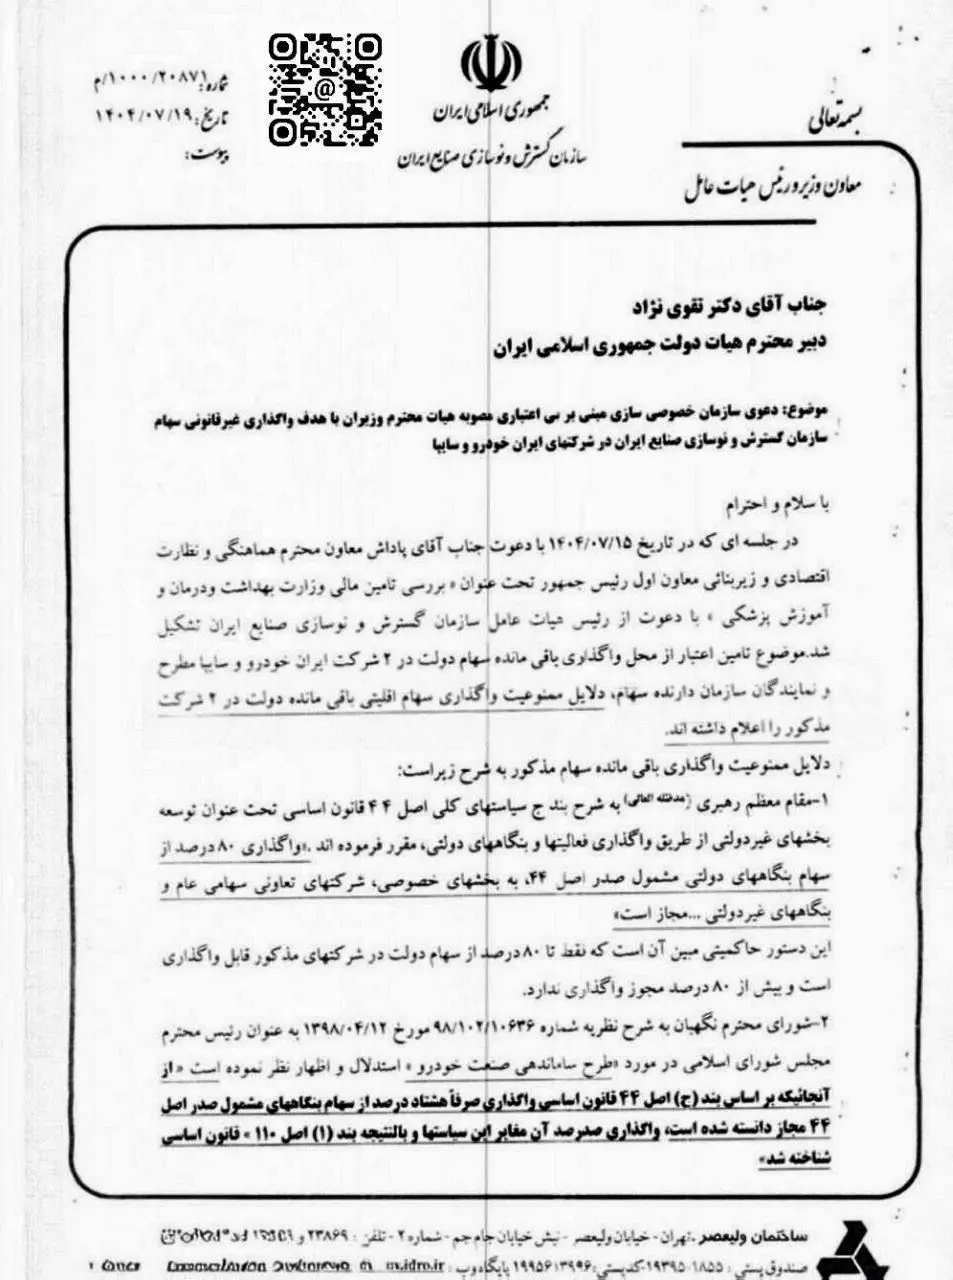 بسمه تعالی
جمهوری اسلامی ایران
سازمان گسترش و نوسازی صنایع ایران
معاون وزیر و رئیس هیات عامل
شماره: ۱۰۰۰/۲۰۸۷۱/م
تاریخ: ۱۴۰۴/۰۷/۱۹
پیوست:
جناب آقای دکتر تقوی نژاد
دبیر محترم هیات دولت جمهوری اسلامی ایران
موضوع: دعوی سازمان خصوصی سازی مبنی بر بی اعتباری مصوبه هیات محترم وزیران با هدف واگذاری غیرقانونی سهام
سازمان گسترش و نوسازی صنایع ایران در شرکتهای ایران خودرو و سایپا
با سلام و احترام
در جلسه ای که در تاریخ ۱۴۰۴/۰۷/۱۵ با دعوت جناب آقای پاداش معاون محترم هماهنگی و نظارت
اقتصادی و زیربنائی معاون اول رئیس جمهور تحت عنوان « بررسی تامین مالی وزارت بهداشت ودرمان و
آموزش پزشکی » با دعوت از رئیس هیات عامل سازمان گسترش و نوسازی صنایع ایران تشکیل
شد.موضوع تامین اعتبار از محل واگذاری باقی مانده سهام دولت در ۲ شرکت ایران خودرو و سایپا مطرح
و نمایندگان سازمان دارنده سهام، دلایل ممنوعیت واگذاری سهام اقلیتی باقی مانده دولت در ۲ شرکت
مذکور را اعلام داشته اند.
دلایل ممنوعیت واگذاری باقی مانده سهام مذکور به شرح زیراست:
۱-مقام معظم رهبری (مدظله العالی) به شرح بند ج سیاستهای کلی اصل ۴۴ قانون اساسی تحت عنوان توسعه
بخشهای غیردولتی از طریق واگذاری فعالیتها و بنگاههای دولتی، مقرر فرموده اند .«واگذاری ۸۰ درصد از
سهام بنگاههای دولتی مشمول صدر اصل ۴۴، به بخشهای خصوصی، شرکتهای تعاونی سهامی عام و
بنگاههای غیردولتی ...مجاز است»
این دستور حاکمیتی مبین آن است که نقط تا ۸۰ درصد از سهام دولت در شرکتهای مذکور قابل واگذاری
است و بیش از ۸۰ درصد مجوز واگذاری ندارد.
۲-شورای محترم نگهبان به شرح نظریه شماره ۹۸/۱۰۲/۱۰۶۳۶ مورخ ۱۳۹۸/۰۴/۱۲ به عنوان رئیس محترم
مجلس شورای اسلامی در مورد «طرح ساماندهی صنعت خودرو » استدلال و اظهار نظر نموده است « از
آنجائیکه بر اساس بند (ج) اصل ۴۴ قانون اساسی واگذاری صرفاً هشتاد درصد از سهام بنگاههای مشمول صدر اصل
۴۴ مجاز دانسته شده است، واگذاری صدرصد آن مغایر این سیاستها و بالنتیجه بند (۱) اصل ۱۱۰ « قانون اساسی
شناخته شد»
ساختمان ولیعصر .تهران - خیابان ولیعصر - نبش خیابان جام جم - شماره ۲ - تلفن : ۲۳۸۶۹ و
صندوق پستی : ۱۸۵۵-۱۹۳۹۵-کدپستی: ۱۹۹۵۶۱۳۹۹۶ پایگاه وب :